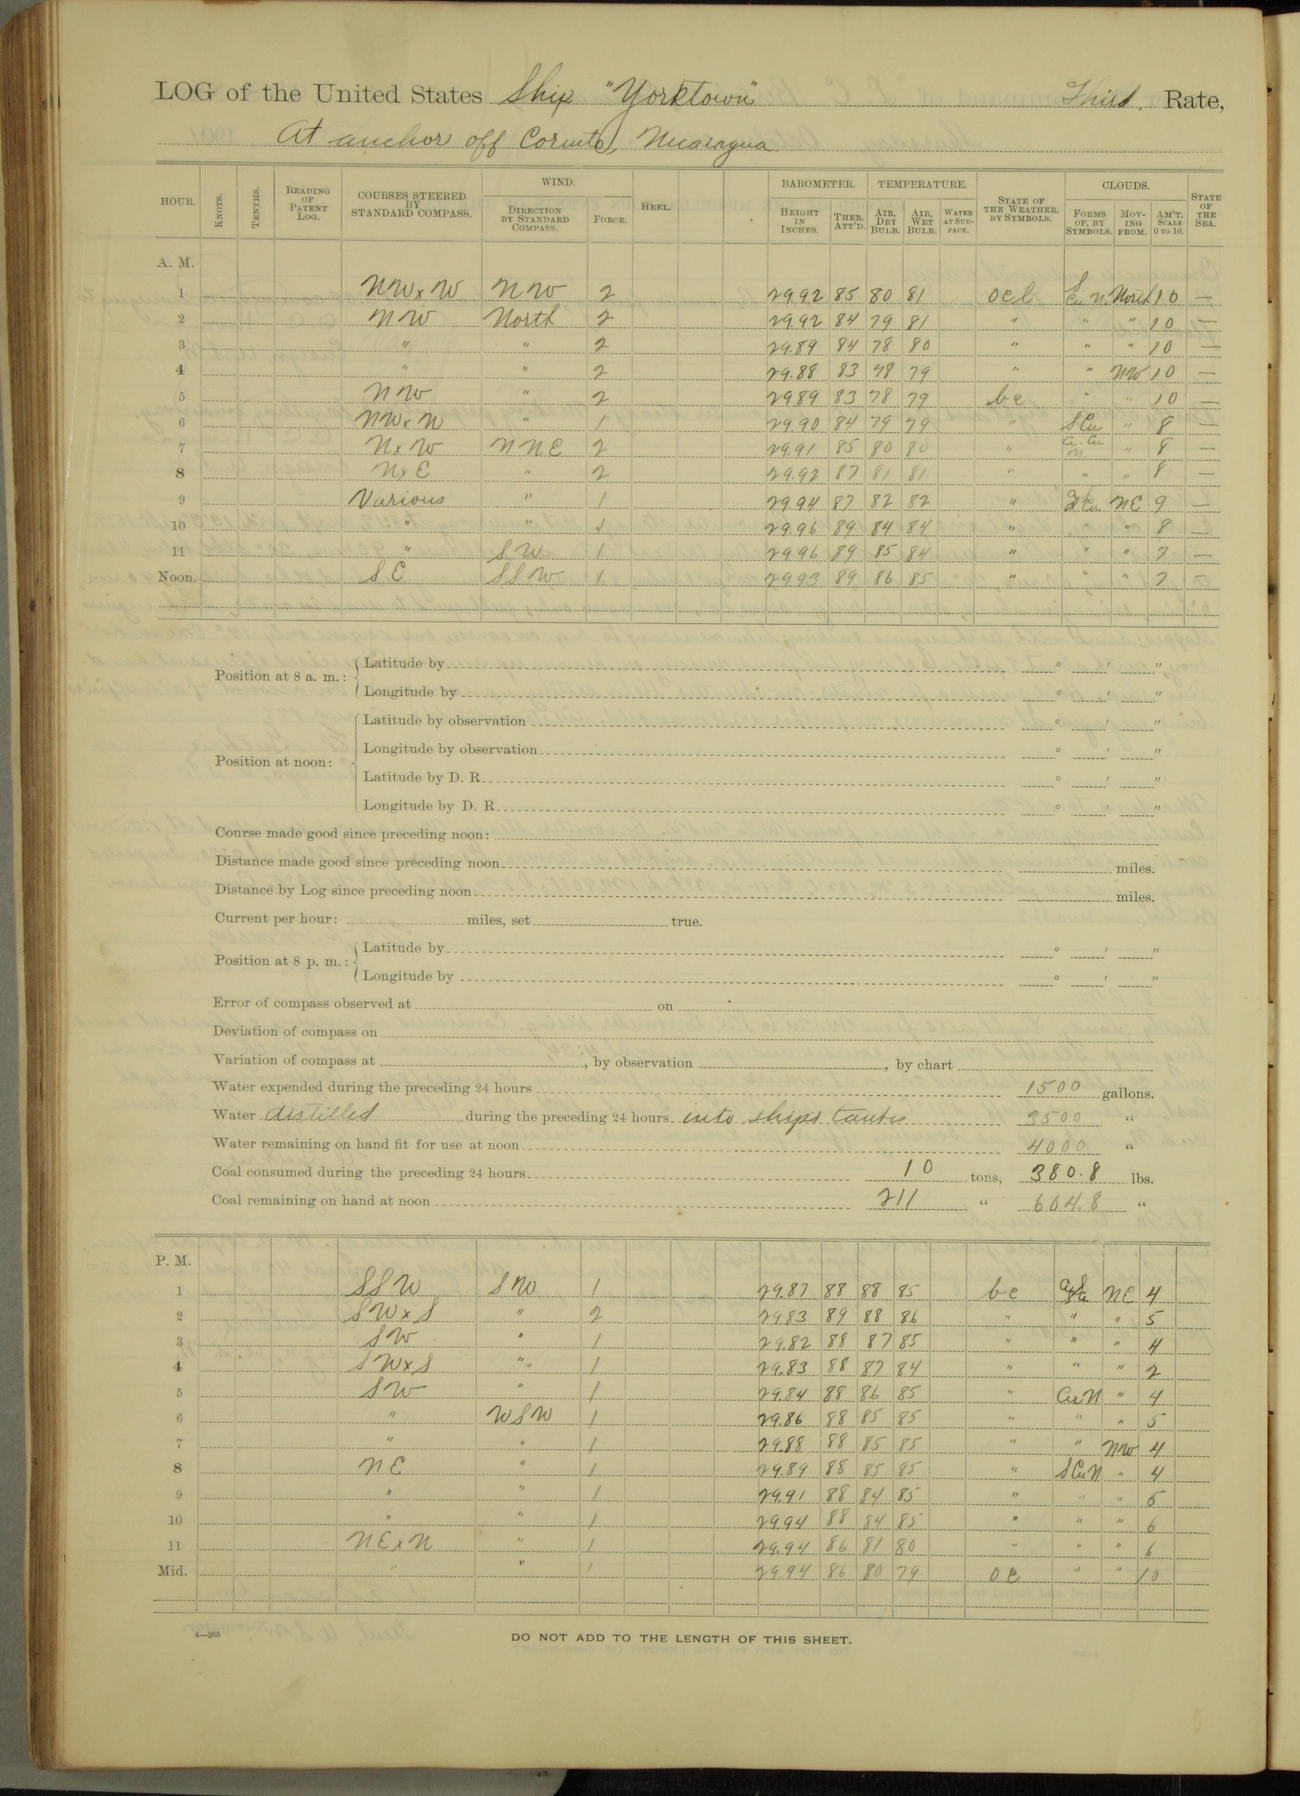 LOG of the United States Ship "Yorktown" Third. Rate,
At anchor off Corinto, Nicaragua.
HOUR. KNOTS. TENTHS. READING OF PATENT LOG. COURSES STEERED BY STANDARD COMPASS. WIND. DIRECTION BY STANDARD COMPASS. FORCE. HEEL. BAROMETER. HEIGHT IN INCHES. THER. ATT'D. TEMPERATURE. AIR, DRY BULB. AIR, WET BULB. WATER AT SURFACE. STATE OF THE WEATHER, BY SYMBOLS. CLOUDS. FORMS OF, BY SYMBOLS. MOVING FROM. AM'T. SCALE 0 TO 10. STATE OF THE SEA.
A. M.
1 NWxW NW 2 29.92 85 80 81 ocl S Cu N. North 10 —
2 NW North 2 29.92 84 79 81 " " " 10 —
3 " " 2 29.89 84 78 80 " " " 10 —
4 " " 2 29.88 83 78 79 " " NW 10 —
5 NW " 2 29.89 83 78 79 bc " " 10 —
6 NWxN " 1 29.90 84 79 79 " S Cu " 8 —
7 NxW NNE 2 29.91 85 80 80 " Ci-Cu N " 8 —
8 NxE " 2 29.92 87 81 81 " " " 8 —
9 Various " 1 29.94 87 82 82 " NE 9 —
10 " " 1 29.96 89 84 84 " " " 8 —
11 " SW 1 29.96 89 85 84 " " " 7 —
Noon. SE SSW 1 29.93 89 86 85 " " " 7
Position at 8 a. m.: Latitude by ° ' "
Longitude by ° ' "
Position at noon: Latitude by observation ° ' "
Longitude by observation ° ' "
Latitude by D. R. ° ' "
Longitude by D. R. ° ' "
Course made good since preceding noon:
Distance made good since preceding noon miles.
Distance by Log since preceding noon miles.
Current per hour: miles, set true.
Position at 8 p. m.: Latitude by ° ' "
Longitude by ° ' "
Error of compass observed at on
Deviation of compass on
Variation of compass at , by observation , by chart
Water expended during the preceding 24 hours 1500 gallons.
Water distilled during the preceding 24 hours into ships tanks 3500 "
Water remaining on hand fit for use at noon 4000 "
Coal consumed during the preceding 24 hours 10 tons, 380.8 lbs.
Coal remaining on hand at noon 211 " 604.8 "
P. M.
1 SSW SW 1 29.87 88 88 85 bc NE 4
2 SWxS " 2 29.83 89 88 86 " " " 5
3 SW " 1 29.82 88 87 85 " " " 4
4 SWxS " 1 29.83 88 87 84 " " " 2
5 SW " 1 29.84 88 86 85 " Cu N " 4
6 " WSW 1 29.86 88 85 85 " " " 5
7 " " 1 29.88 88 85 85 " " NW 4
8 NE " 1 29.89 88 85 85 " S Cu N " 4
9 " " 1 29.91 88 84 85 " " " 5
10 " " 1 29.94 88 84 85 " " " 6
11 NExN " 1 29.94 86 81 80 " " " 6
Mid. " " 1 29.94 86 80 79 oc " " 10
4—265
DO NOT ADD TO THE LENGTH OF THIS SHEET.